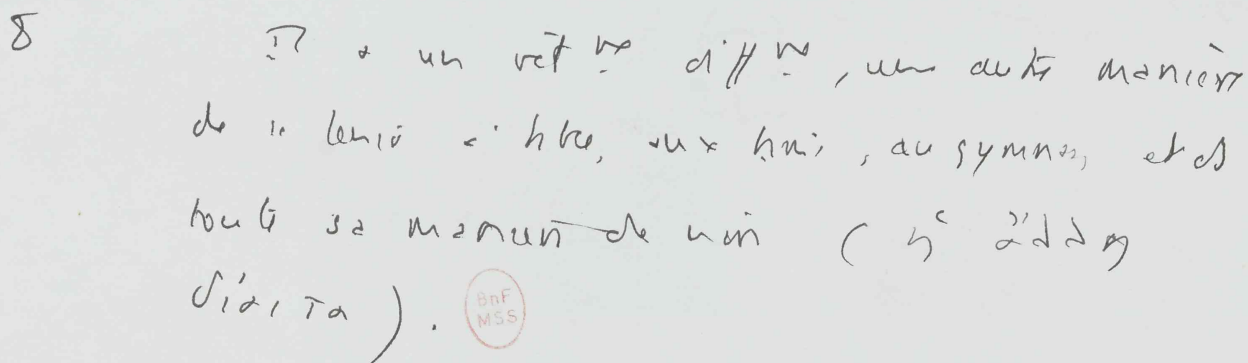 8 Il a un vêt nt diff nt, une autre manière
de se tenir à table, aux bains, au gymnase, et ds
toute sa manière de vivre ( ἡ ἄλλη
δίαιτα ).
BnF
MSS